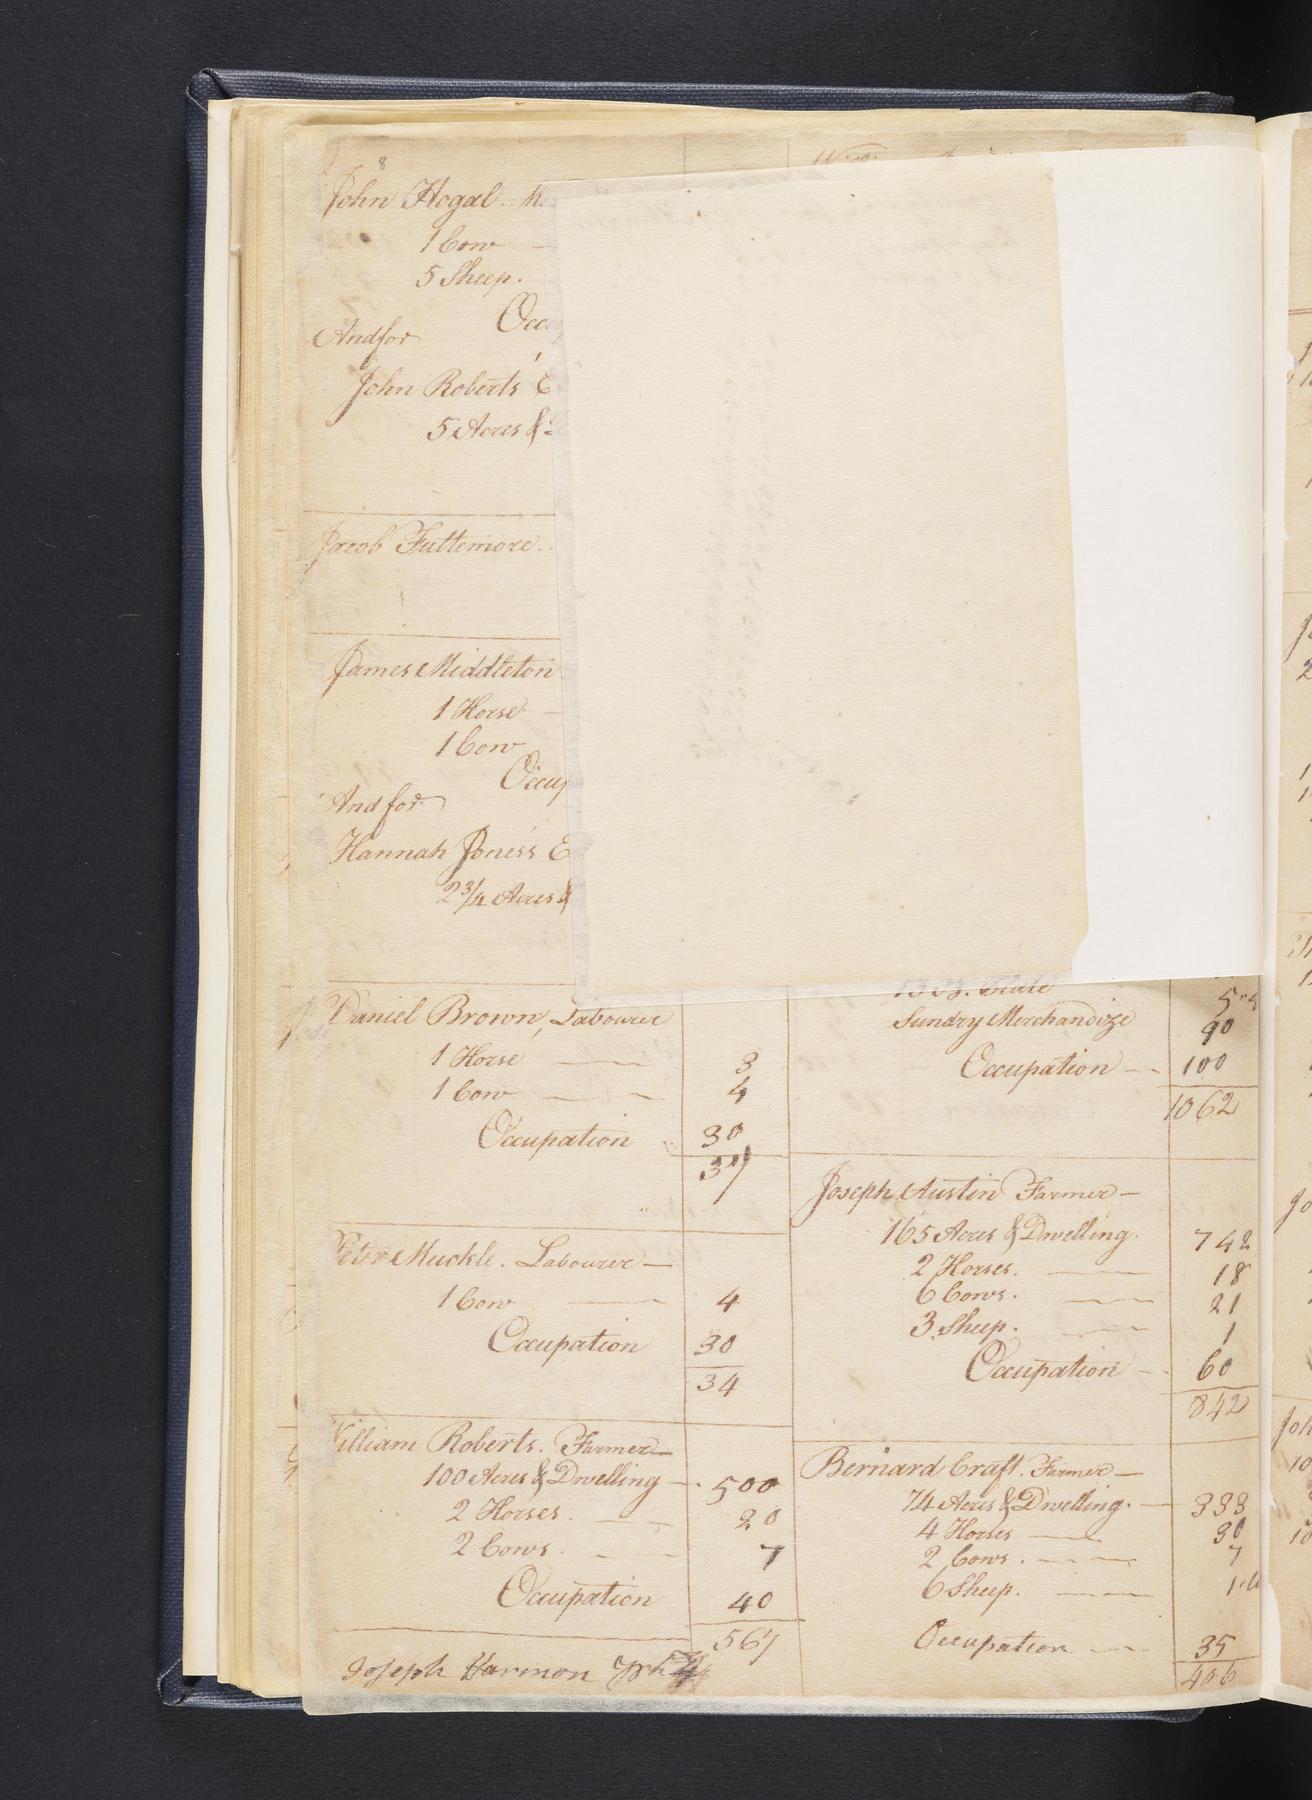 8
John Hogal.
1 Cow
5 Sheep.
Occ
And for
John Roberts E
5 Acres &
Jacob Futtemore.
James Middleton
1 Horse
1 Cow
Occup
And for
Hannah Jones's E
2 3/4 Acres &
Daniel Brown, Labourer
1 Horse 3
1 Cow 4
Occupation 30
37
Peter Muckle. Labourer
1 Cow 4
Occupation 30
34
William Roberts. Farmer
100 Acres & Dwelling 500
2 Horses. 20
2 Cows. 7
Occupation 40
567
Joseph Harmon
13 oz. Plate
Sundry Merchandize 90
Occupation 100
1062
Joseph Austin Farmer
165 Acres & Dwelling. 742
2 Horses. 18
6 Cows. 21
3 Sheep. 1
Occupation 60
842
Bernard Craft. Farmer
74 Acres & Dwelling. 333
4 Horses 30
2 Cows. 7
6 Sheep.
Occupation 35
406